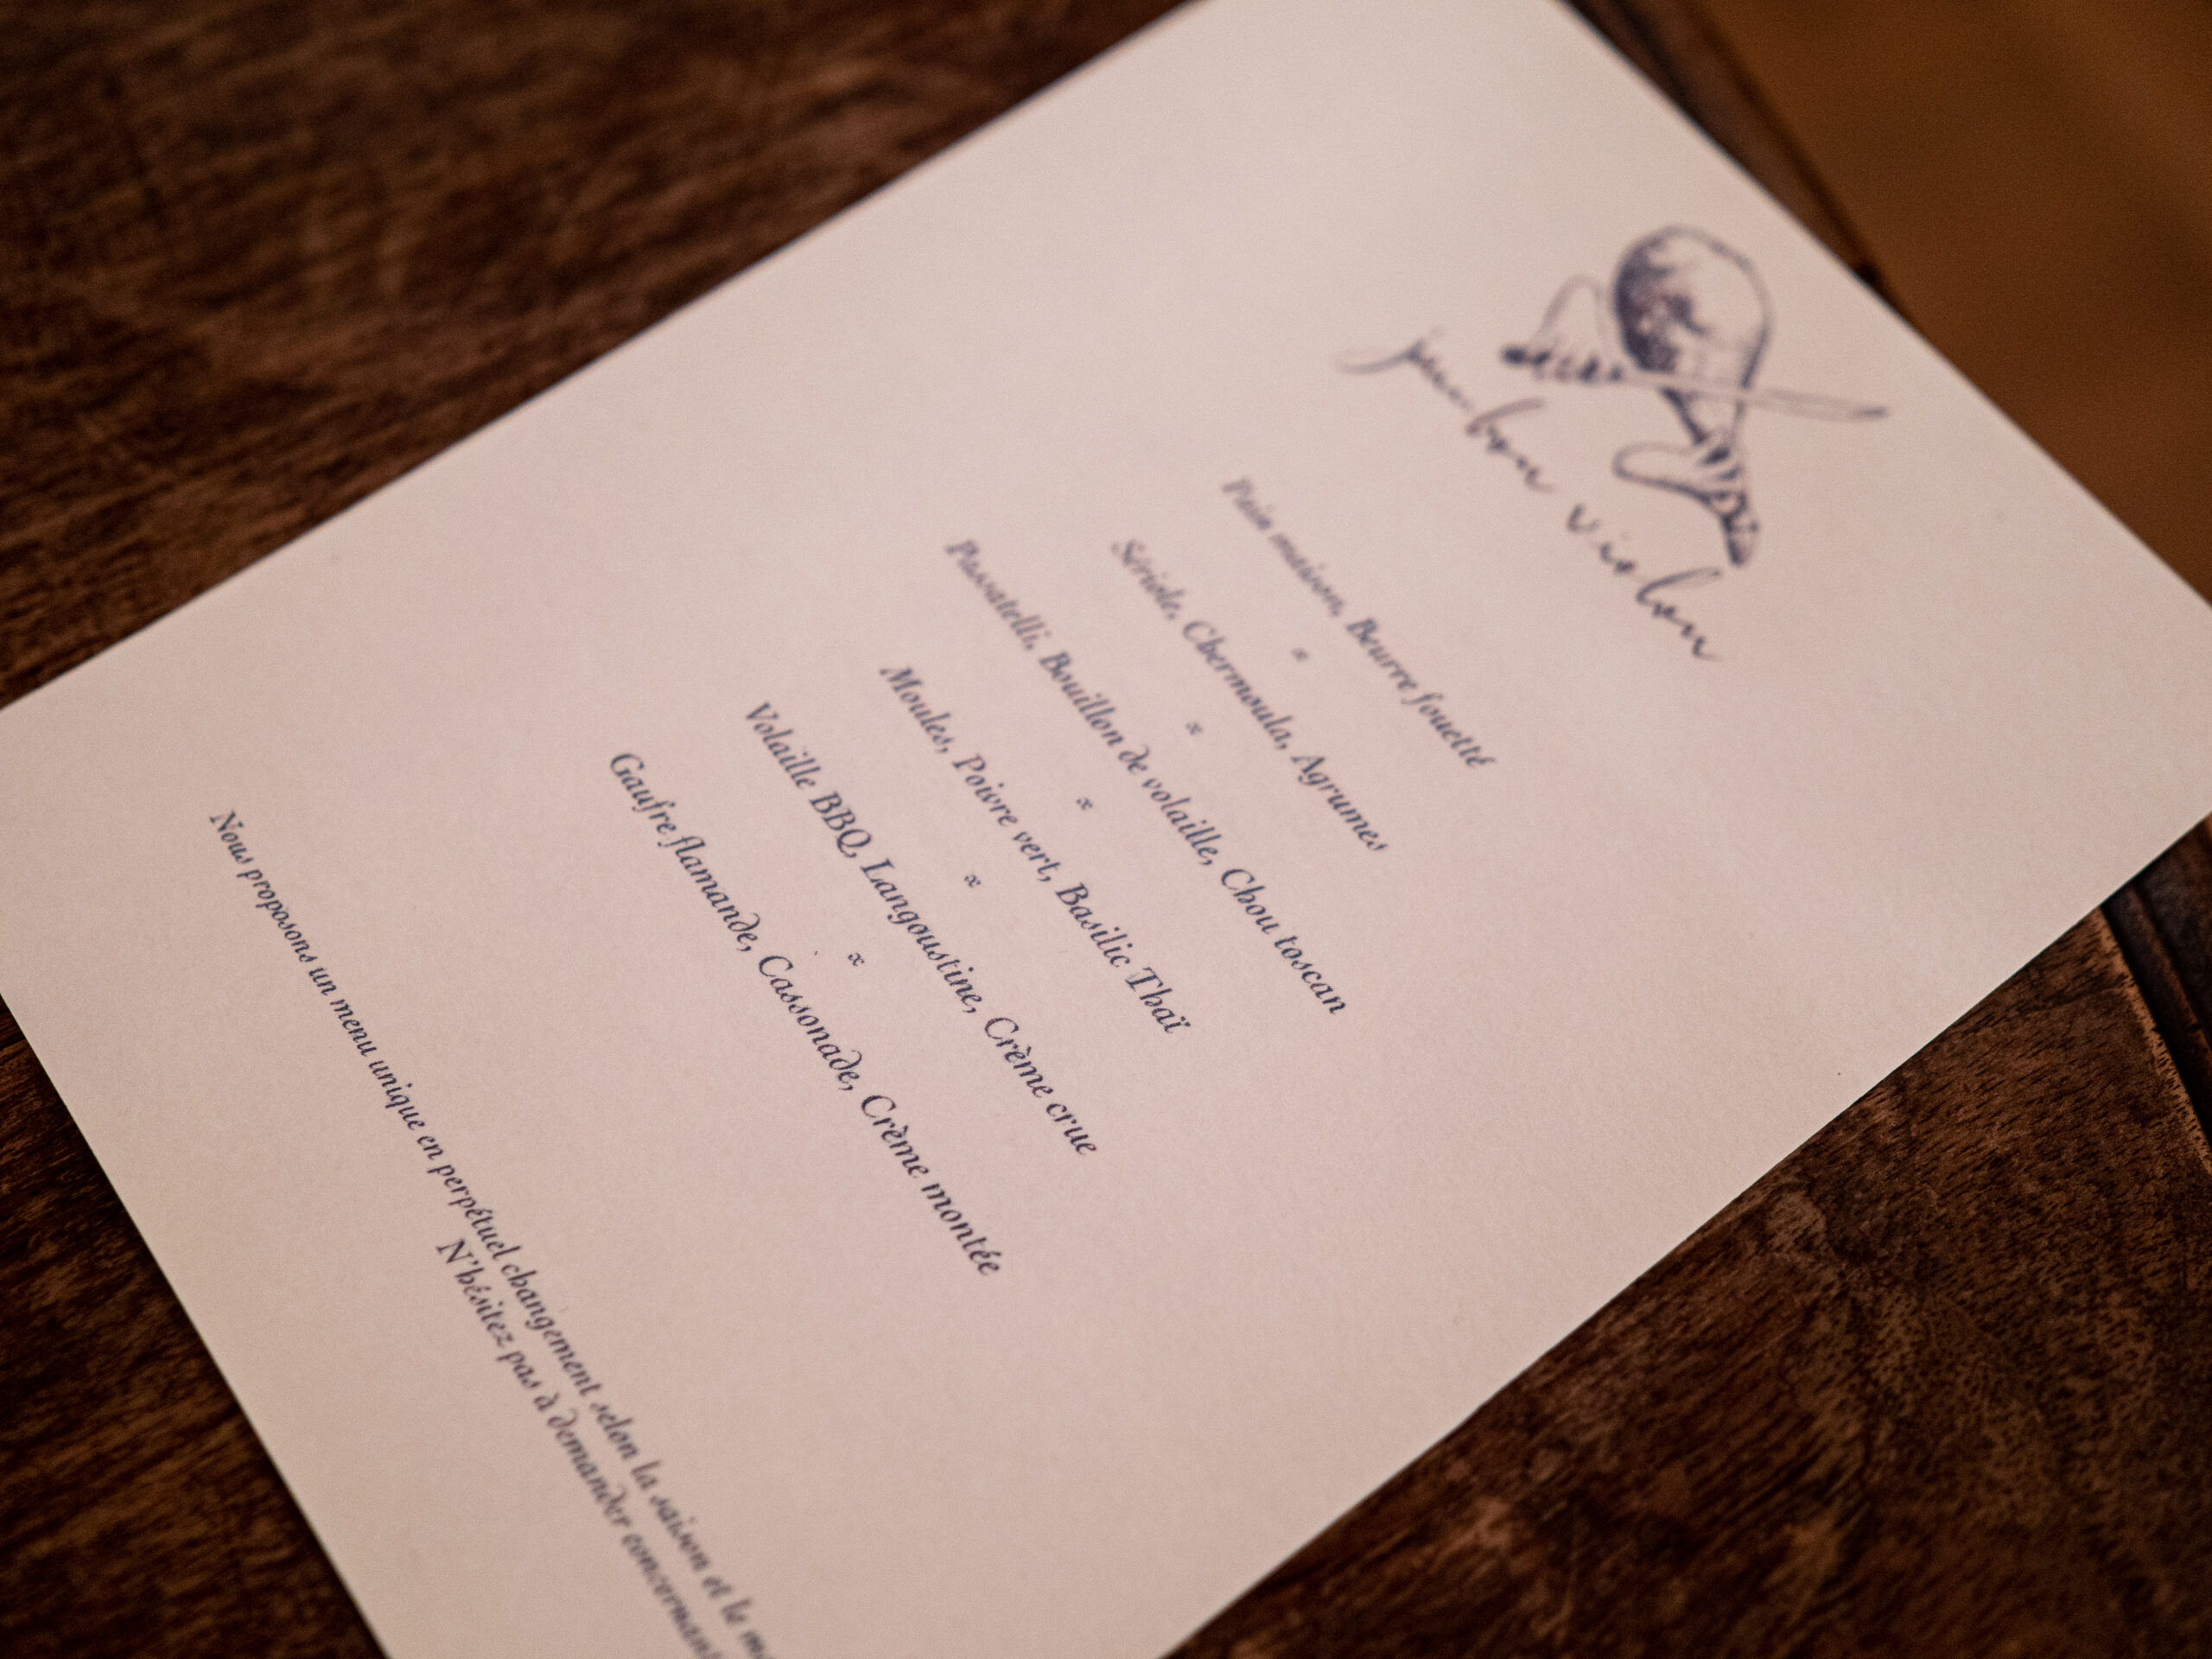 jambon violon
Pain maison, Beurre fouetté
x
Sériole, Chermoula, Agrumes
x
Passatelli, Bouillon de volaille, Chou toscan
x
Moules, Poivre vert, Basilic Thaï
x
Volaille BBQ, Langoustine, Crème crue
x
Gaufre flamande, Cassonade, Crème montée
Nous proposons un menu unique en perpétuel changement selon la saison et le
N'hésitez pas à demander concernant